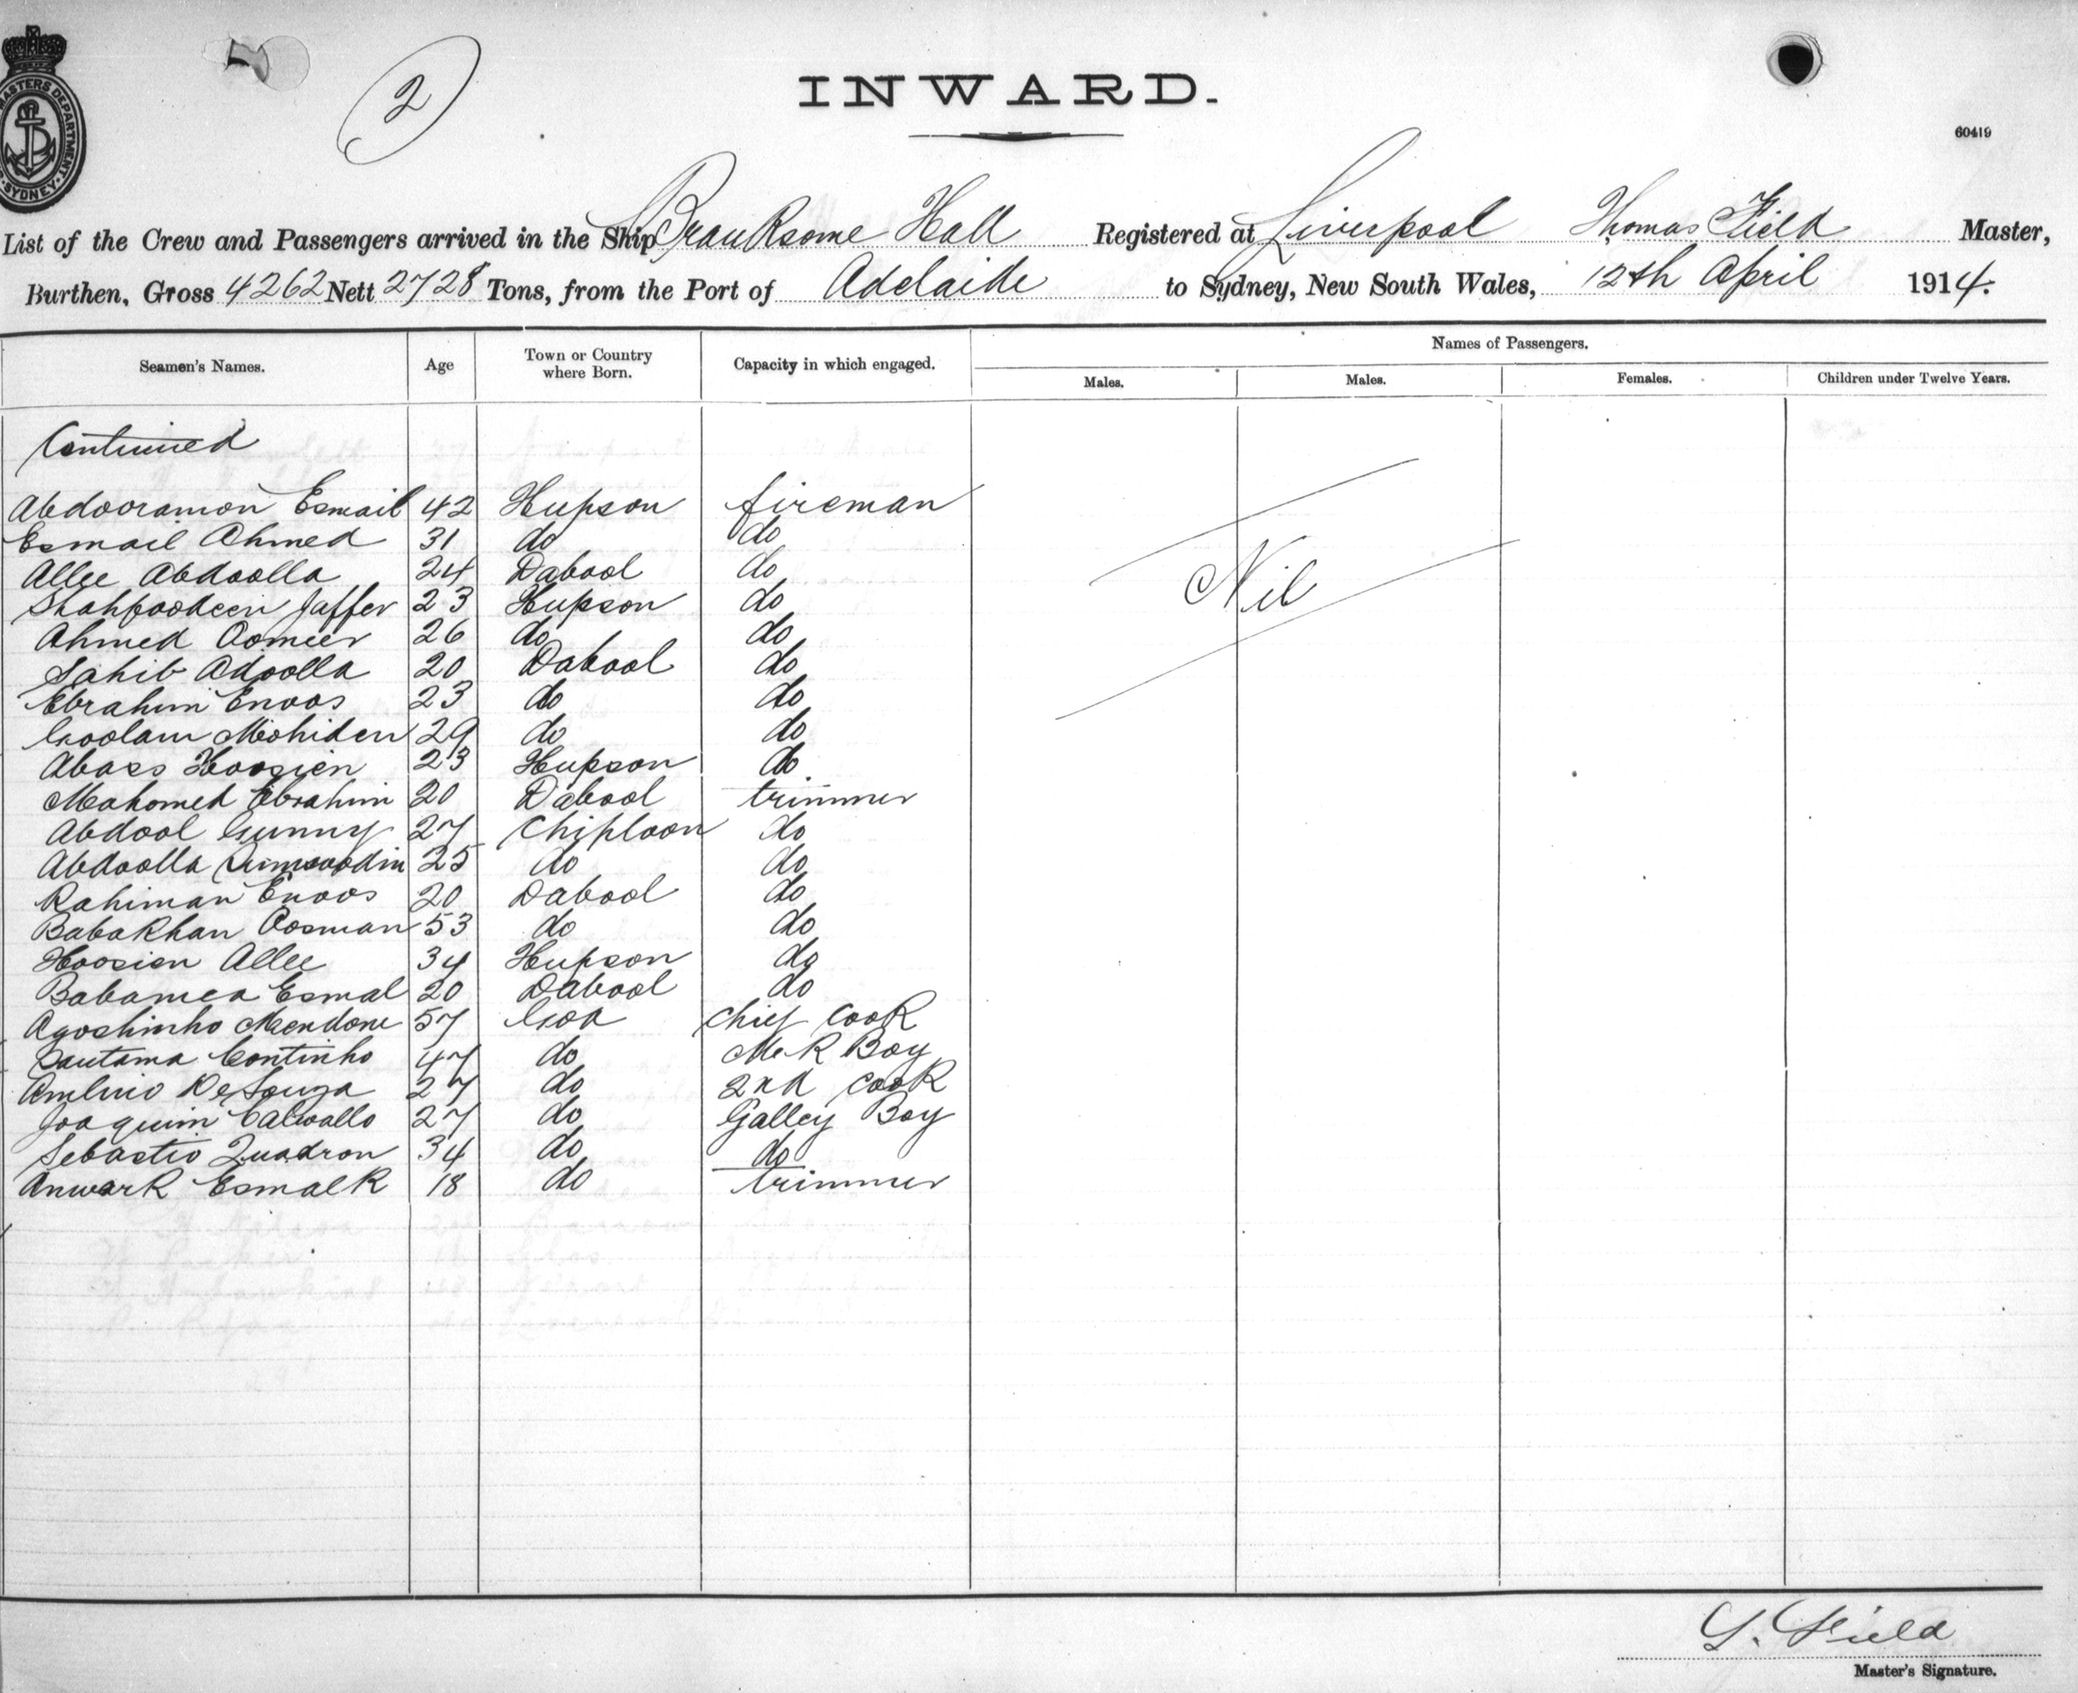 MASTERS DEPARTMENT
SYDNEY
2
INWARD.
60419
List of the Crew and Passengers arrived in the Ship Branksome Hall Registered at Liverpool Thomas Field Master,
Burthen, Gross 4262 Nett 2728 Tons, from the Port of Adelaide to Sydney, New South Wales, 12th April 1914.
Seamen's Names. Age Town or Country where Born. Capacity in which engaged. Names of Passengers.
Males. Males. Females. Children under Twelve Years.
Continued
Abdooramon Esmail 42 Hupson fireman
Esmail Ahmed 31 do do
Allee Abdoolla 24 Dabool do
Shahboodeen Jaffer 23 Hupson do
Nil
Ahmed Oomeer 26 do do
Sahib Adoolla 20 Dabool do
Ebrahim Enoos 23 do do
Goolam Mohiden 29 do do
Abass Hoosien 23 Hupson do
Mahomed Ebrahim 20 Dabool trimmer
Abdool Gunny 27 Chiploon do
Abdoolla 25 do do
Rahiman Enoos 20 Dabool do
Babakhan Oosman 53 do do
Hoosien Allee 34 Hupson do
Babamea Esmal 20 Dabool do
Agoshinho Mendone 57 Goa Chief Cook
Santama Continho 47 do M R Boy
De Souza 27 do 2nd Cook
Joaquim 27 do Galley Boy
Sebastio Quadron 34 do do
Anwark Esmalk 18 do trimmer
T. Field
Master's Signature.